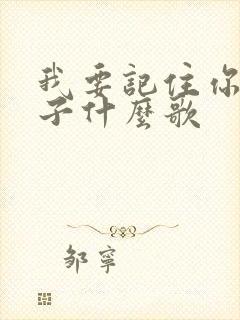 我要記住你
子什麼歌
邹寧